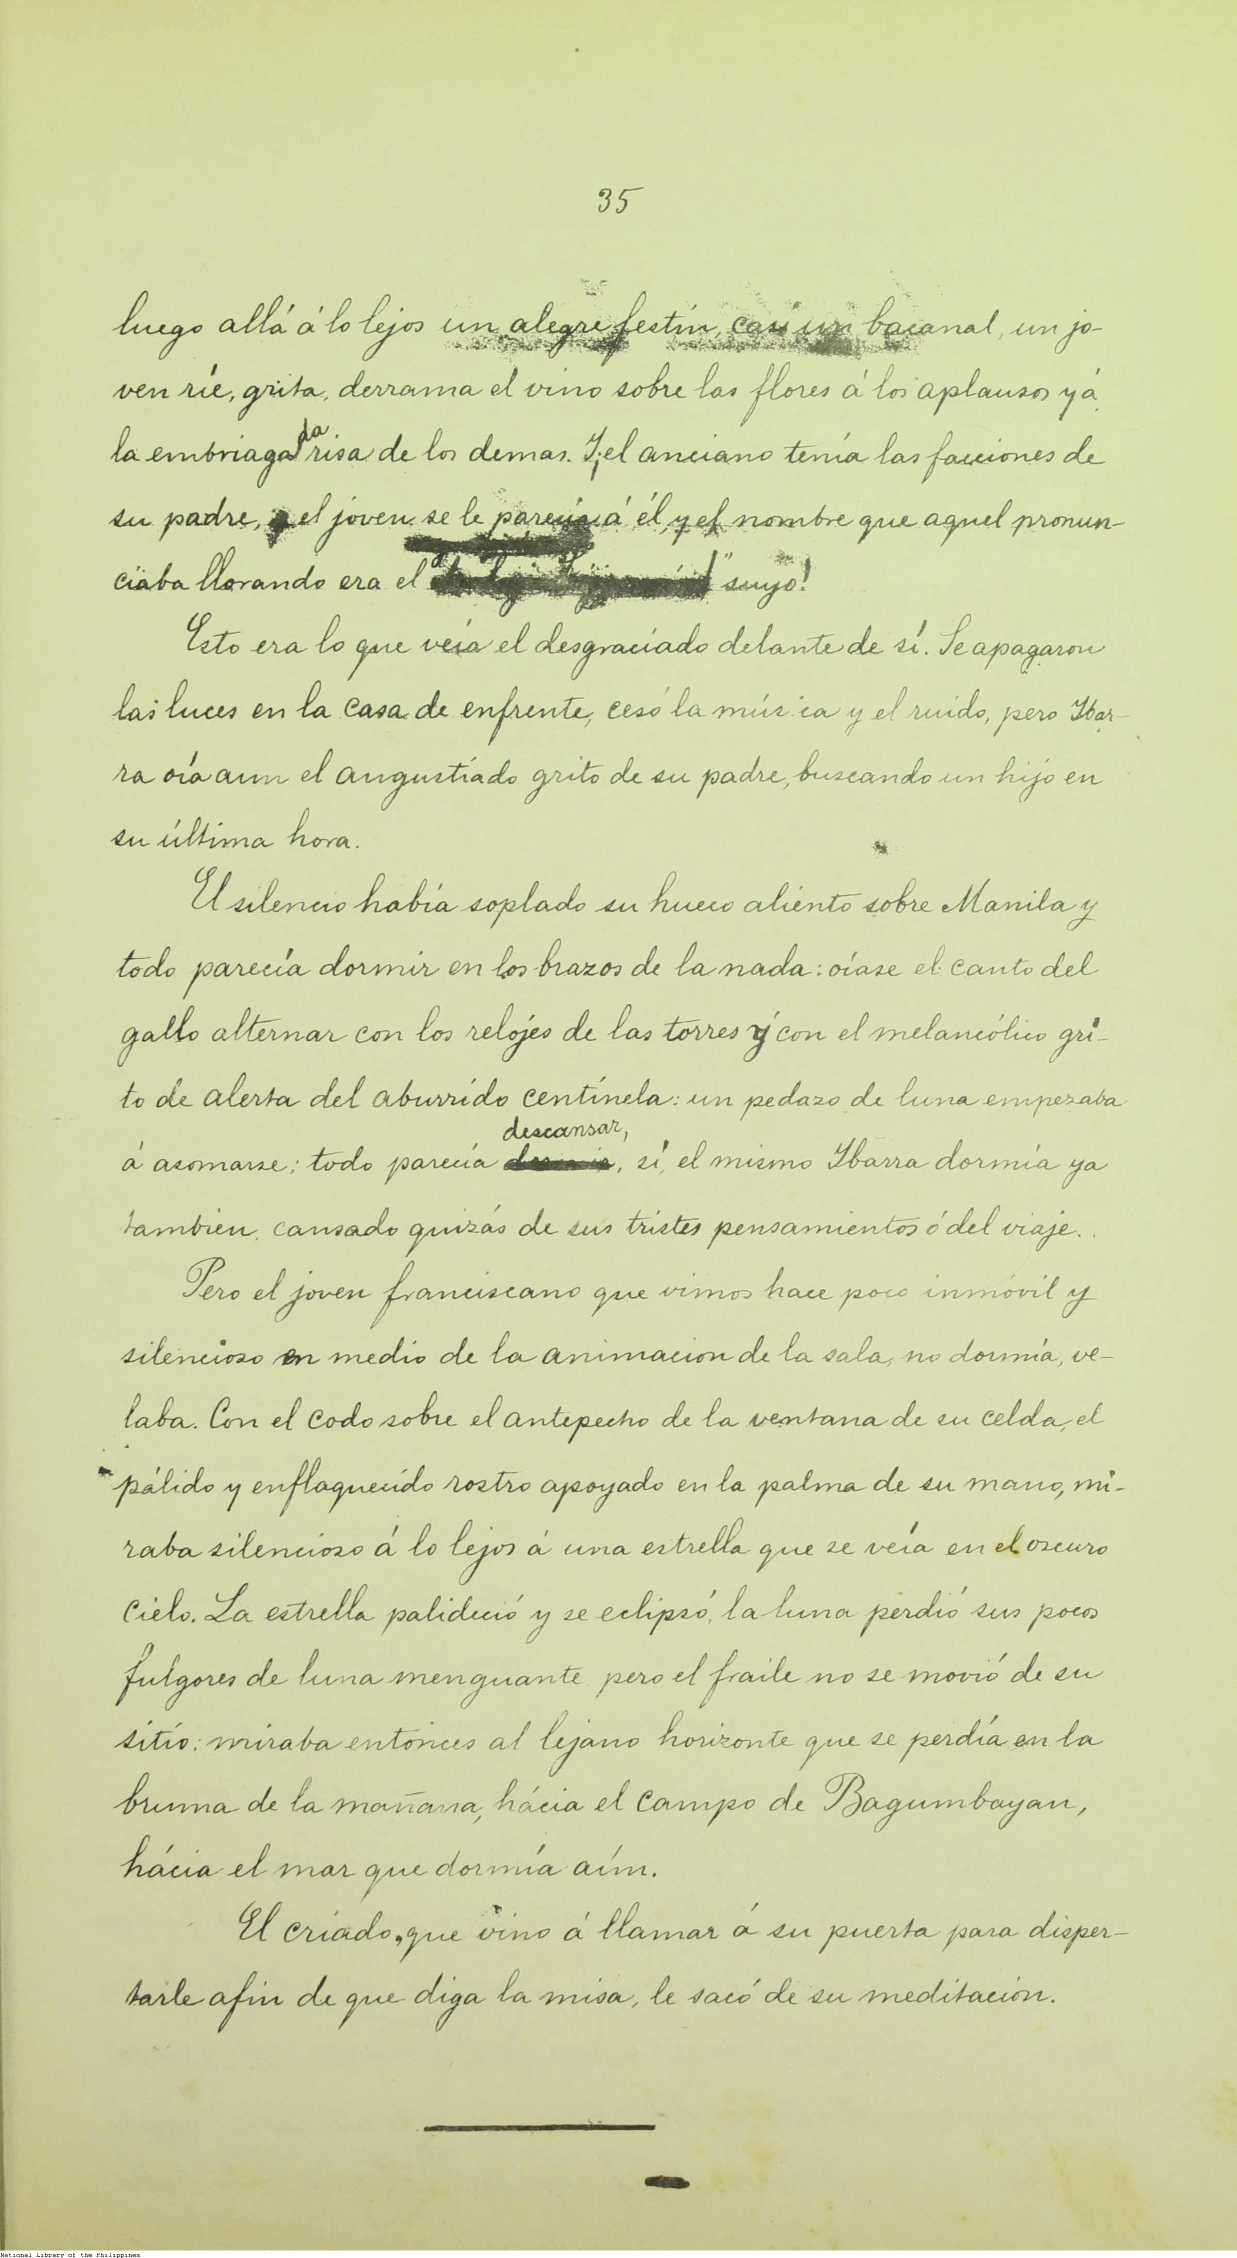 35
luego allá á lo lejos un alegre festín, casi un bacanal, un jo-
ven ríe, grita, derrama el vino sobre las flores á los aplausos y á
la embriagada risa de los demas. Y el anciano tenía las facciones de
su padre, el joven se le parecía á él, y el nombre que aquel pronun-
ciaba llorando era el suyo!
Esto era lo que veía el desgraciado delante de sí. Se apagaron
las luces en la casa de enfrente, cesó la música y el ruido, pero Ibar-
ra oía aun el angustiado grito de su padre, buscando un hijo en
su última hora.
El silencio había soplado su hueco aliento sobre Manila y
todo parecía dormir en los brazos de la nada: oíase el canto del
gallo alternar con los relojes de las torres y con el melancólico gri-
to de alerta del aburrido centinela: un pedazo de luna empezaba
á asomarse; todo parecía descansar, sí, el mismo Ibarra dormía ya
tambien, cansado quizás de sus tristes pensamientos ó del viaje..
Pero el joven franciscano que vimos hace poco inmóvil y
silencioso en medio de la animacion de la sala, no dormía, ve-
laba. Con el codo sobre el antepecho de la ventana de su celda, el
pálido y enflaquecido rostro apoyado en la palma de su mano, mi-
raba silencioso á lo lejos á una estrella que se veía en el oscuro
cielo. La estrella palideció y se eclipsó, la luna perdió sus pocos
fulgores de luna menguante pero el fraile no se movió de su
sitio: miraba entonces al lejano horizonte que se perdía en la
bruma de la mañana, hácia el campo de Bagumbayan,
hácia el mar que dormía aún.
El criado, que vino á llamar á su puerta para disper-
tarle afin de que diga la misa, le sacó de su meditación.
National Library of the Philippines